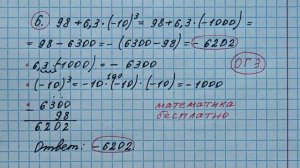 6. 98 + 6,3 · (-10)³ = 98 + 6,3 · (-1000) =
= 98 - 6300 = - (6300 - 98) = -6202
• 6,3 · (-1000) = - 6300
ОГЭ
• (-10)³ = -10 · (-10) · (-10) = -1000
100
6300
98
6202
математика
бесплатно
Ответ: -6202